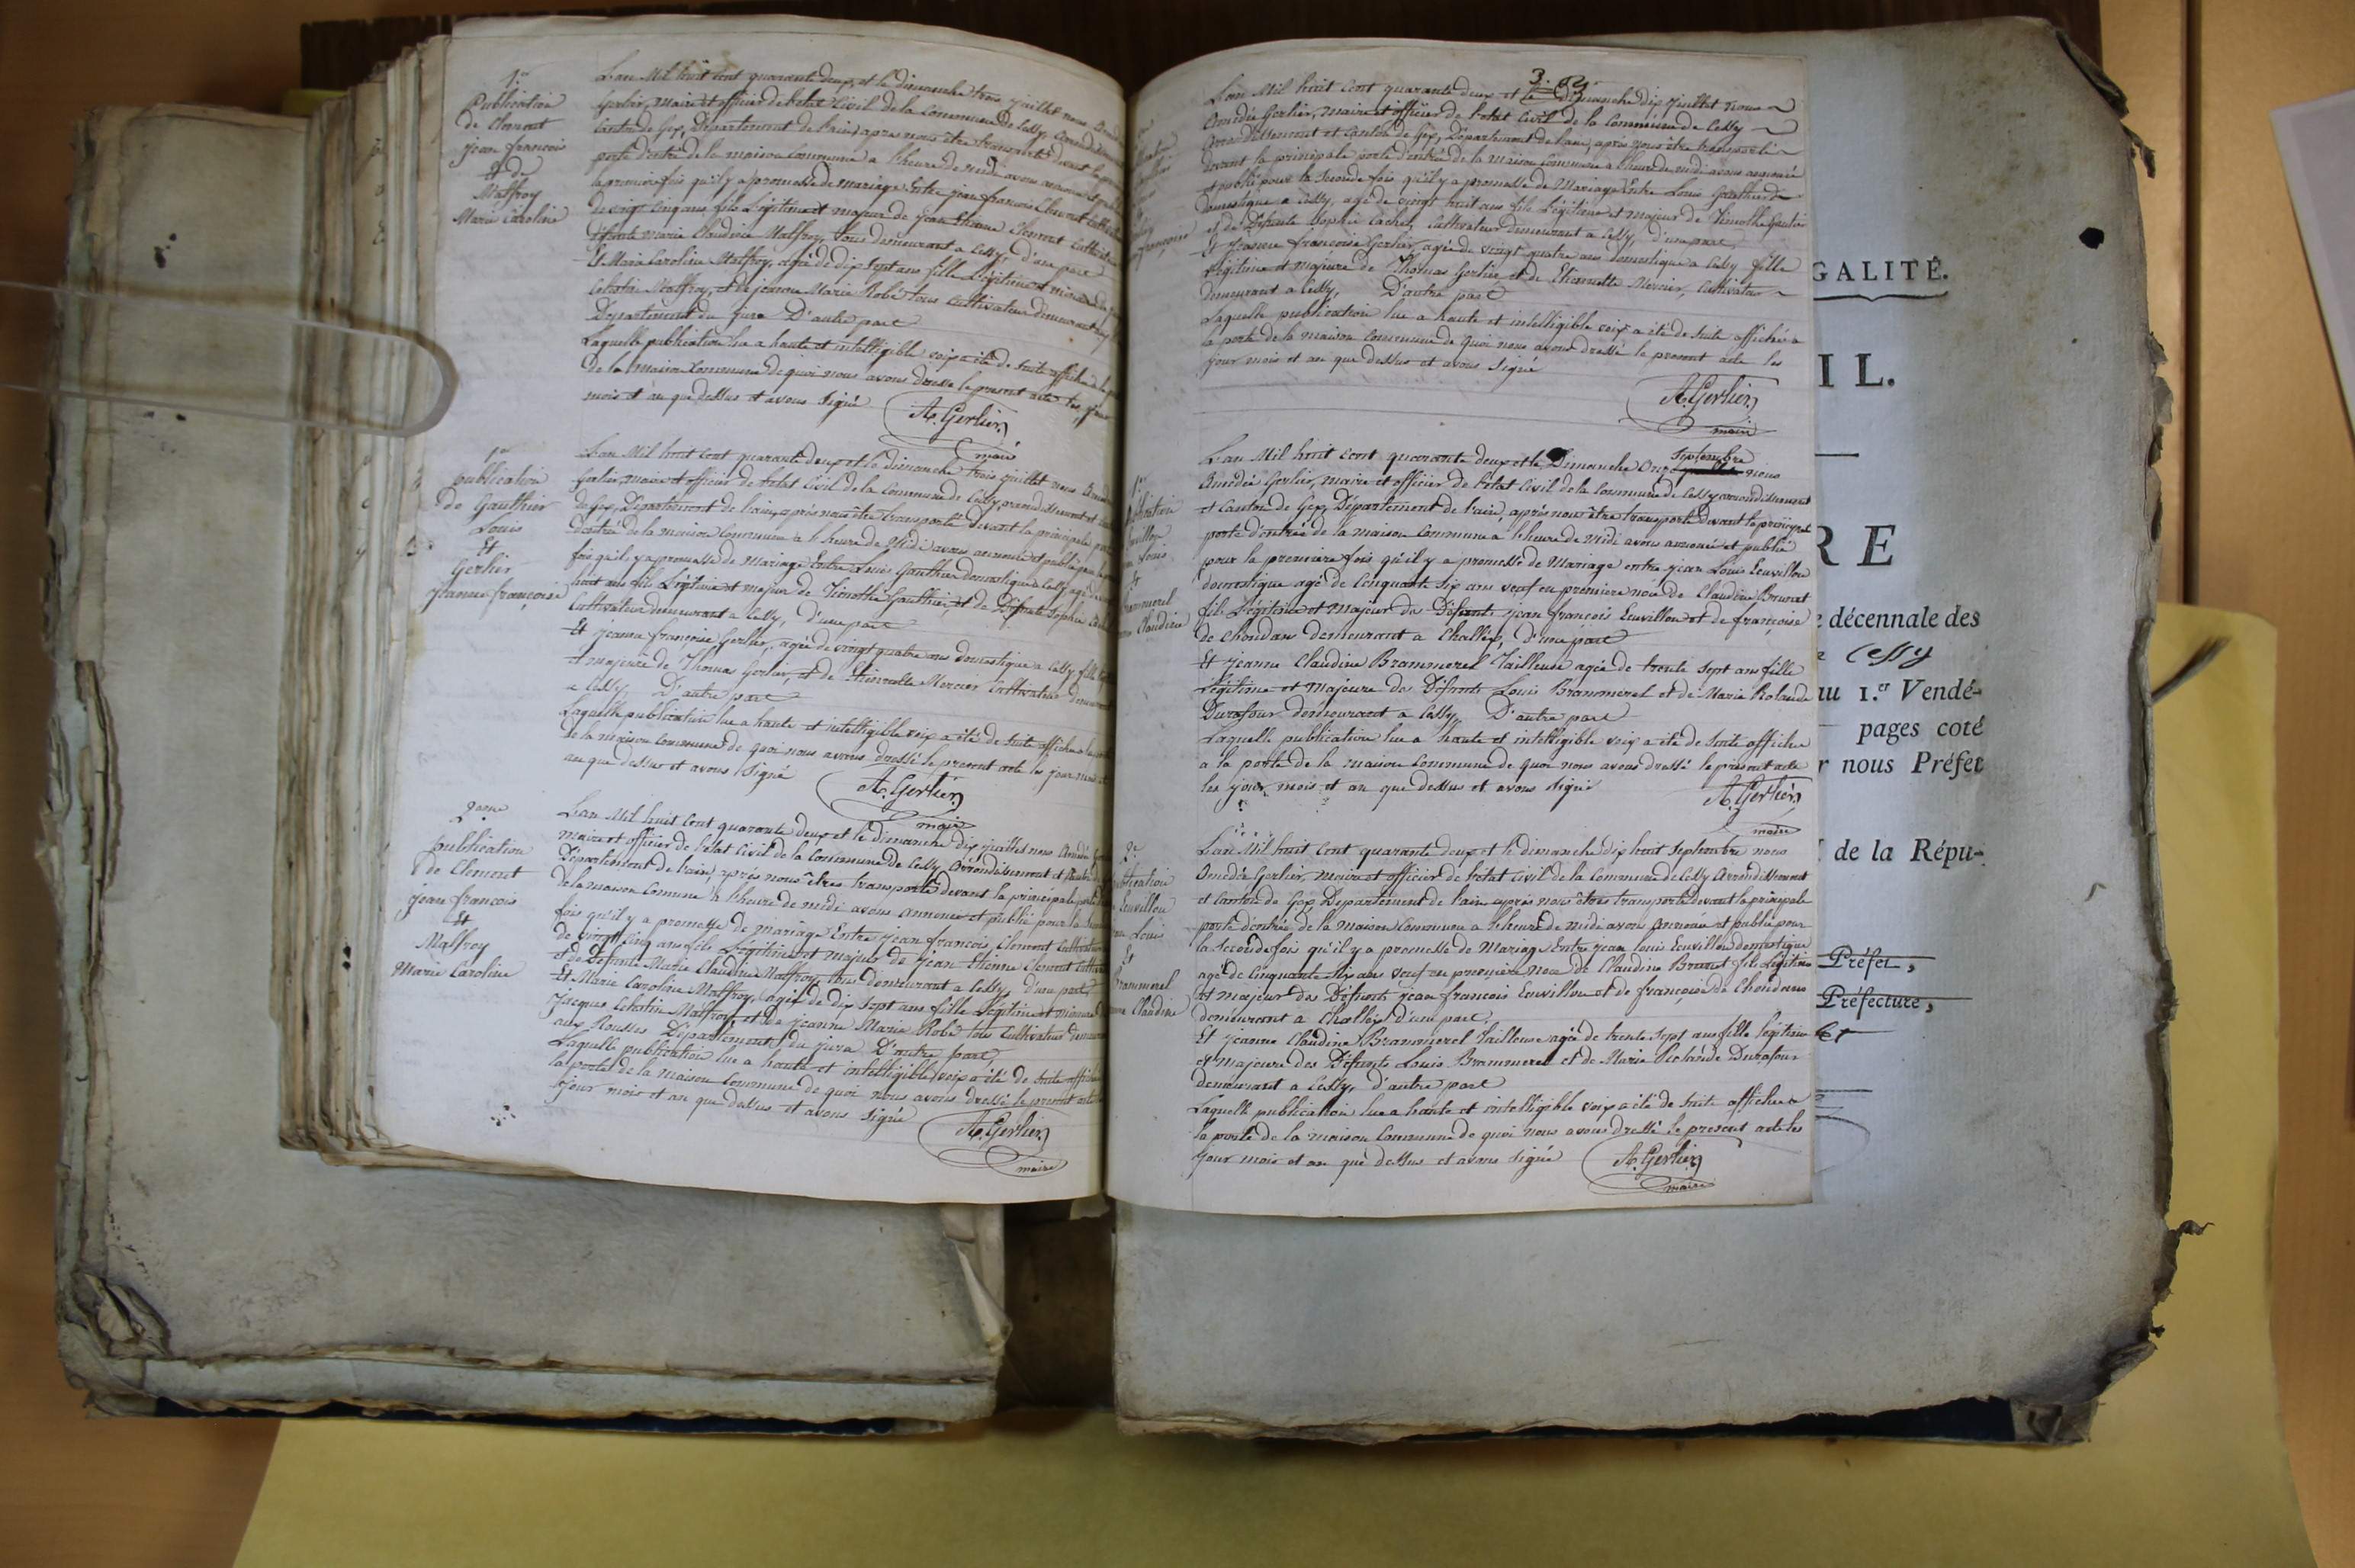 1.er
Publication
de Clement
jean francois
& de
Malfroy
Marie Caroline
L'an Mil huit cent quarante deux, et le dimanche trois juillet nous
Gerlier, Maire et officier de l'etat Civil de la Commune de Cessy,
Canton de Gex, Département de l'ain, après nous être transporté devant la
porte d'entrée de la maison Commune a l'heure de midi avons annoncé et
la première fois qu'il y a promesse de Mariage Entre jean francois Clement
de vingt cinq ans fils Légitime et majeur de jean Etienne Clement
défunte Marie Claudine Malfroy, tous demeurant a Cessy, d'une part
Et Marie Caroline Malfroy, agée de dix sept ans fille Légitime et mineure
Celestin Malfroy, et de jeanne Marie Robé tous Cultivateur demeurant
Département du jura D'autre part
Laquelle publication lue a haute et intelligible voix a été de suite affichée
de la Maison Commune de quoi nous avons dressé le present acte les jour
mois et an que dessus et avons signé
A. Gerlier
maire
1.er
publication
de Gauthier
Louis
Et
Gerlier
jeanne françoise
L'an Mil huit cent quarante deux et le dimanche trois juillet nous
Gerlier, maire et officier de l'etat Civil de la Commune de Cessy, arrondissement et
de Gex, Département de l'ain, après nous être transporté devant la principale
d'entrée de la maison Commune a l'heure de Midi avons annoncé et publié
fois qu'il y a promesse de Mariage Entre Louis Gauthier domestique a Cessy agé de
huit ans fils Légitime et majeur de Timothé Gauthier, et de Défunte Sophie
Cultivateur demeurant a Cessy, d'une part
Et jeanne françoise Gerlier, agée de vingt quatre ans domestique a Cessy fille
et majeure de Thomas Gerlier, et de Etiennette Mercier Cultivateur
a Cessy, D'autre part
Laquelle publication lue a haute et intelligible voix a été de suite affichée
de la maison Commune de quoi nous avons dressé le present acte les jour mois
an que dessus et avons Signé
A. Gerlier
maire
2.eme
publication
de Clement
jean francois
Et
Malfroy
Marie Caroline
L'an Mil huit Cent quarante deux et le dimanche dix juillet nous Amédé
maire et officier de l'etat Civil de la Commune de Cessy Arrondissement et
Département de l'ain, après nous êtres transportés devant la principale porte
de la maison Commune a l'heure de midi avons annoncé et publié pour la
fois qu'il y a promesse de mariage Entre jean francois Clement
de vingt cinq ans fils Légitime et majeur de jean Etienne Clement
et de Defunte Marie Claudine Malfroy, tous demeurant a Cessy, d'une part
Et Marie Caroline Malfroy, agée de dix sept ans fille Légitime et mineure
Jacques Celestin Malfroy et de jeanne Marie Robé tous Cultivateur
aux Rousses Département du jura D'autre part
Laquelle publication lue a haute et intelligible voix a été de suite
la porte de la maison Commune de quoi nous avons dressé le present
jour mois et an que dessus et avons signé
A. Gerlier
maire
3.
L'an Mil huit Cent quarante deux et le dimanche dix juillet nous
Amédée Gerlier, maire et officier de l'etat Civil de la Commune de Cessy
Arrondissement et Canton de Gex, Département de l'ain, après nous être transporté
devant la principale porte d'entrée de la maison Commune a l'heure de midi avons annoncé
et publié pour la seconde fois qu'il y a promesse de Mariage Entre Louis Gauthier
domestique a Cessy, agé de vingt huit ans fils Légitime et majeur de Timothé
et de Defunte Sophie Cachet, Cultivateur demeurant a Cessy, d'une part,
Et jeanne françoise Gerlier, agée de vingt quatre ans domestique a Cessy fille
Légitime et majeure de Thomas Gerlier, et de Etiennette Mercier, Cultivateur
demeurant a Cessy, D'autre part
Laquelle publication lue a haute et intelligible voix a été de suite affichée a
la porte de la maison Commune de quoi nous avons dressé le present acte les
jour mois et an que dessus et avons signé
A. Gerlier
maire
Louis
Et
Claudine
L'an Mil huit cent quarante deux et le Dimanche Onze Septembre nous
Amédée Gerlier, maire et officier de l'etat Civil de la Commune de Cessy arrondissement
et Canton de Gex, Département de l'ain, après nous être transporté devant la principal
porte d'entrée de la maison Commune a l'heure de midi avons annoncé et publié
pour la premiere fois qu'il y a promesse de Mariage entre jean Louis Euvillon
domestique agé de Cinquante Six ans veuf en première noce de Claudine Brunet
fils Légitime et majeur des Défunts jean françois Euvillon et de françoise
de Chondens demeurant a Challex, D'une part
Et jeanne Claudine Brammerel Tailleuse agée de trente Sept ans fille
Légitime et Majeure des Defunts Louis Brammerel et de Marie Rolande
Durafour demeurant a Cessy, D'autre part
Laquelle publication lue a haute et intelligible voix a été de Suite affichée
a la porte de la maison Commune de quoi nous avons dressé le present acte
les jour, mois et an que dessus et avons signé
A. Gerlier
maire
2.e
Euvillon
Louis
Et
Brammerel
Claudine
L'an Mil huit cent quarante deux et le dimanche dix huit Septembre nous
Amédée Gerlier, Maire et officier de l'etat Civil de la Commune de Cessy Arrondissement
et Canton de Gex, Departement de l'ain après nous êtres transporté devant la principale
porte d'entrée de la maison Commune a l'heure de midi avons annoncé et publié pour
la seconde fois qu'il y a promesse de Mariage Entre jean Louis Euvillon domestique
agé de Cinquante Six ans veuf en premiere noce de Claudine Brunet fils Légitime
et majeur des Défunts jean francois Euvillon et de françoise de Chondens
demeurant a Challex d'une part.
Et jeanne Claudine Brammerel Tailleuse agée de trente sept ans fille légitime
et majeure des Défunts Louis Brammerel et de Marie Rolande Durafour
demeurant a Cessy, d'autre part
Laquelle publication lue a haute et intelligible voix a été de suite affichée a
la porte de la maison Commune de quoi nous avons dressé le present acte les
jour mois et an que dessus et avons signé
A. Gerlier
maire
GALITÉ.
IL.
RE
décennale des
Cessy
au 1.er Vendé-
pages coté
r nous Préfet
de la Répu-
Préfet,
Préfecture,